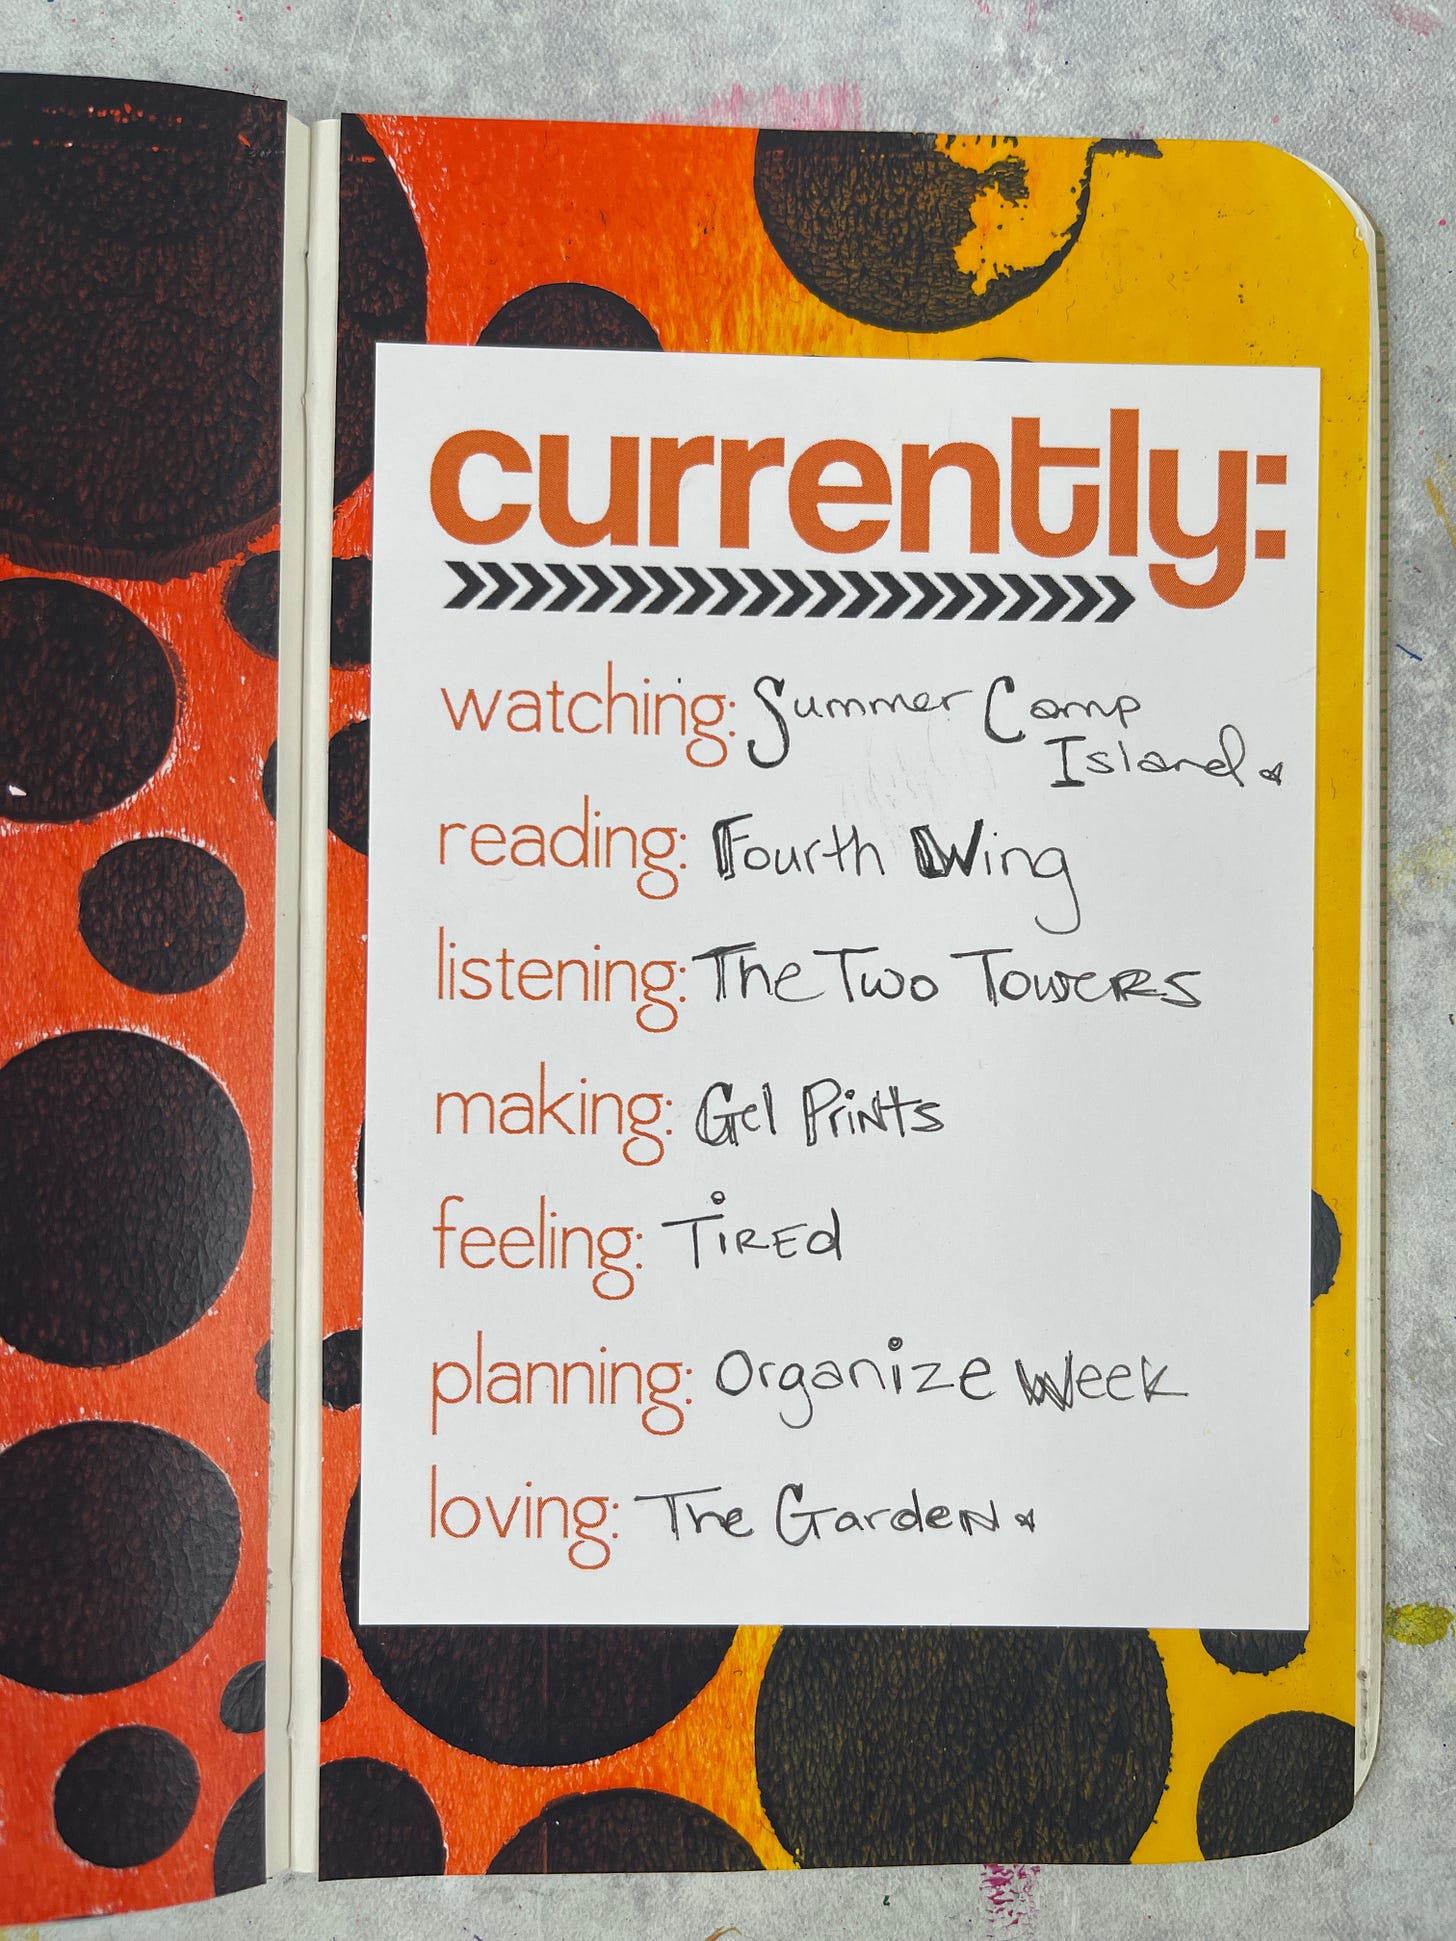 currently:
watching: Summer Camp
Island
reading: Fourth Wing
listening: The Two Towers
making: Gel Prints
feeling: Tired
planning: Organize Week
loving: The Garden